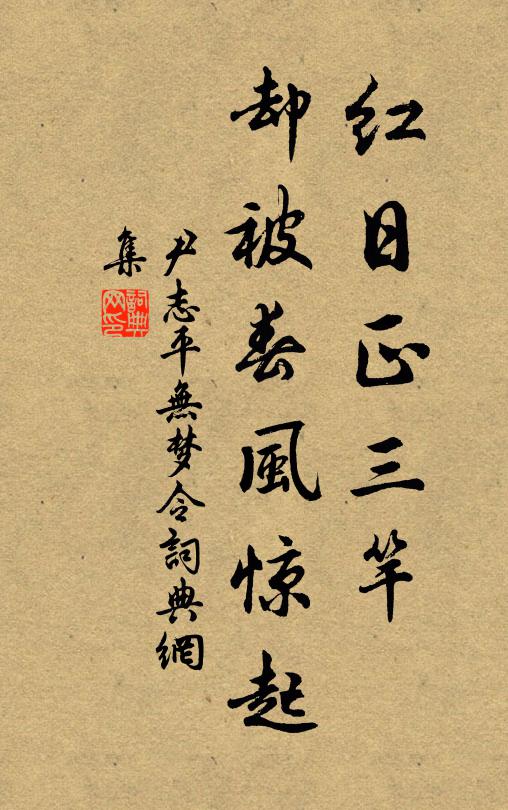 红日正三竿
却被春風惊起
尹志平無梦令詞典網
集
詞典网印